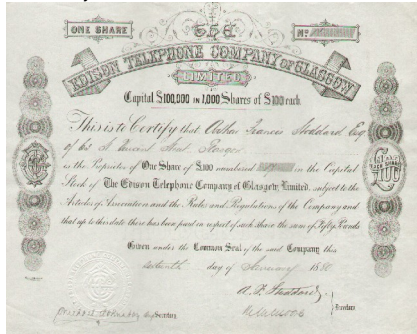 ONE SHARE
No
EDISON TELEPHONE COMPANY OF GLASGOW
LIMITED
Capital £100,000 IN 1,000 Shares of £100 each.
This is to Certify that Arthur Francis Stoddard Esq
of 63 St Vincent Street
is the Proprietor of One Share of £100 numbered in the Capital
Stock of The Edison Telephone Company of Glasgow, Limited, subject to the
Articles of Association and the Rules and Regulations of the Company and
that up to this date there has been paid in respect of such Share the sum of Fifty Pounds
Given under the Common Seal of the said Company this
day of 1880
Secretary
A. F. Stoddard
Directors